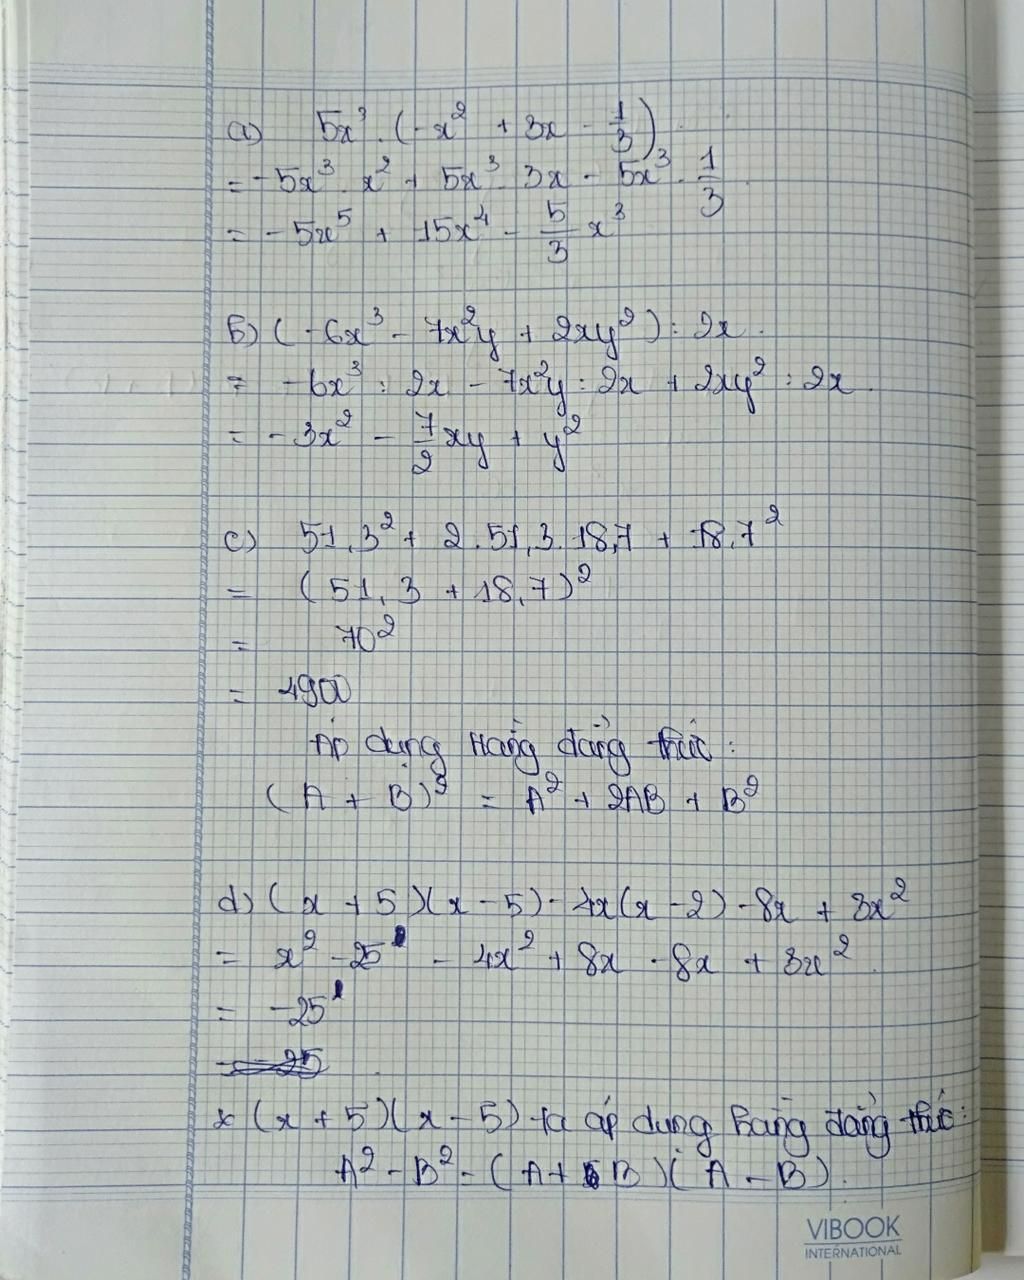 a) 5x³ . (-x² + 3x - 1/3)
= -5x³ . x² + 5x³ . 3x - 5x³ . 1/3
= -5x⁵ + 15x⁴ - 5/3 x³
b) (-6x³ - 7x²y + 2xy²) : 2x
= -6x³ : 2x - 7x²y : 2x + 2xy² : 2x
= -3x² - 7/2 xy + y²
c) 51,3² + 2.51,3.18,7 + 18,7²
= (51,3 + 18,7)²
= 70²
= 4900
Áp dụng Hằng đẳng thức :
(A + B)² = A² + 2AB + B²
d) (x + 5)(x - 5) - 4x(x - 2) - 8x + 3x²
= x² - 25 - 4x² + 8x - 8x + 3x²
= -25
* (x + 5)(x - 5) ta áp dụng hằng đẳng thức :
A² - B² = (A + B)(A - B).
VIBOOK
INTERNATIONAL